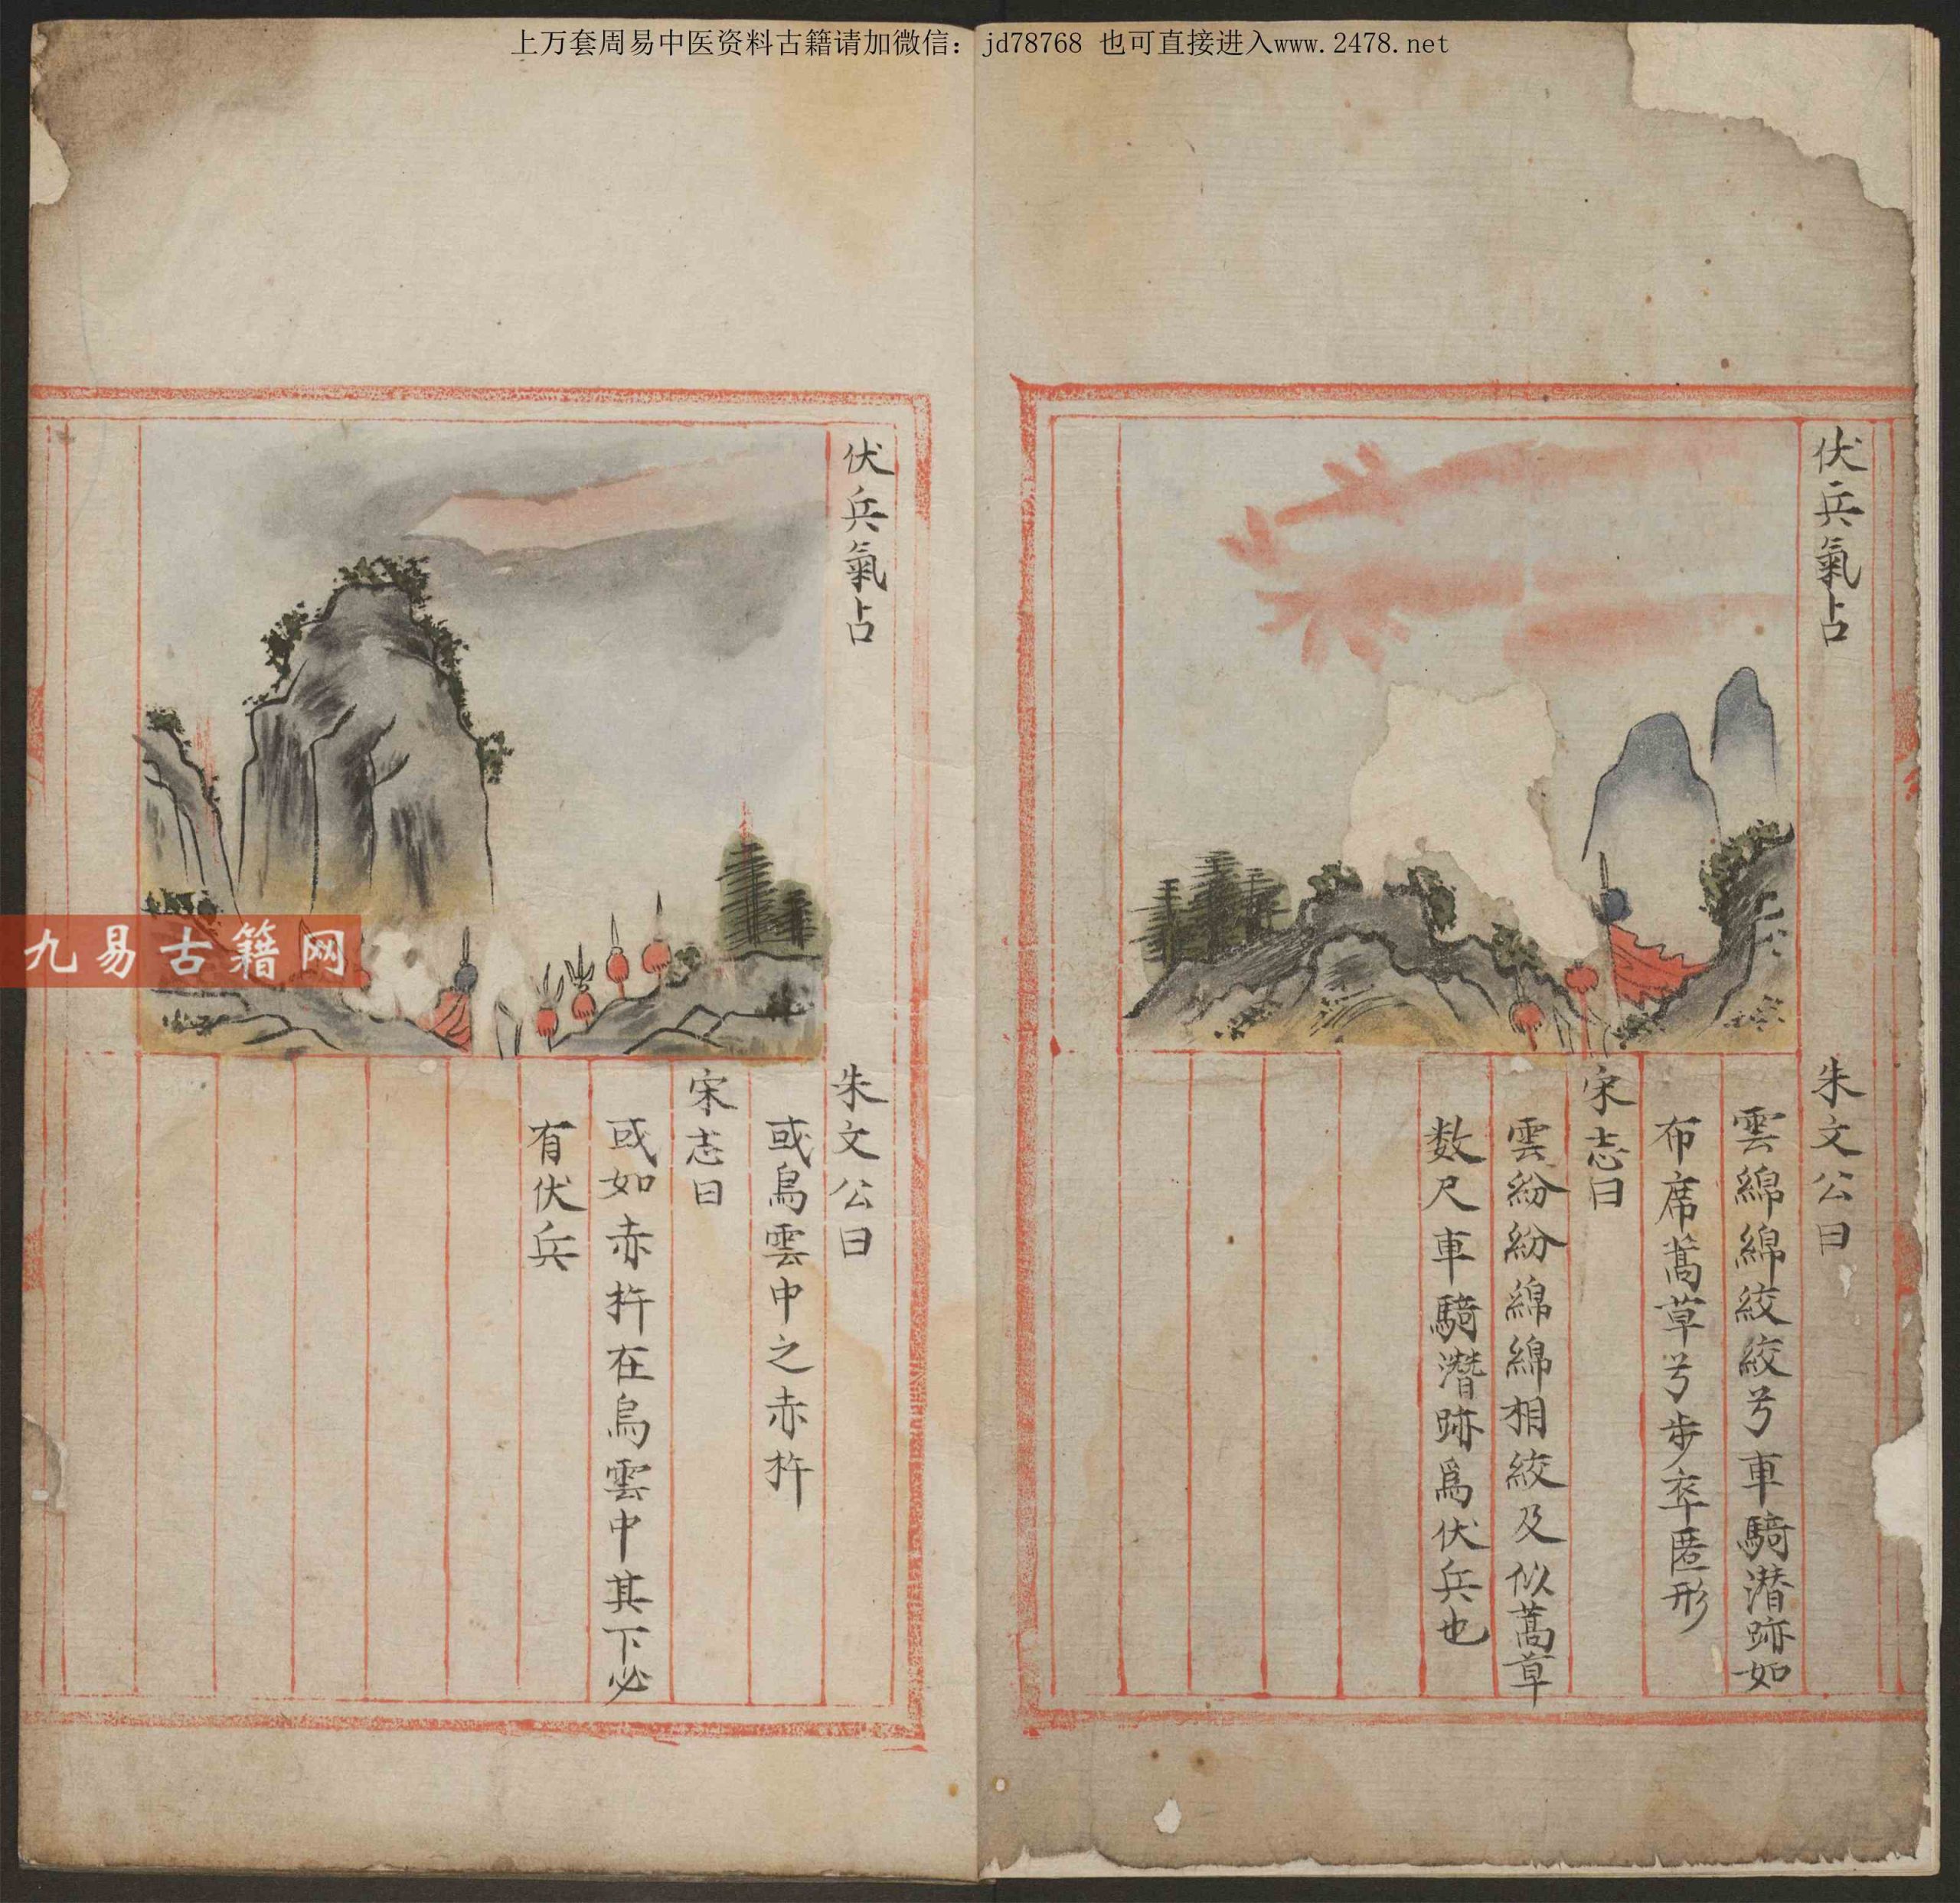 上万套周易中医资料古籍请加微信：jd78768 也可直接进入www.2478.net
伏兵氣占
朱文公曰
雲綿綿絞絞兮車騎潛跡如
布席蒿草兮步卒匿形
宋志曰
雲紛紛綿綿相絞及似蒿草
数尺車騎潛跡爲伏兵也
伏兵氣占
朱文公曰
或烏雲中之赤杵
宋志曰
或如赤杵在烏雲中其下必
有伏兵
九易古籍网